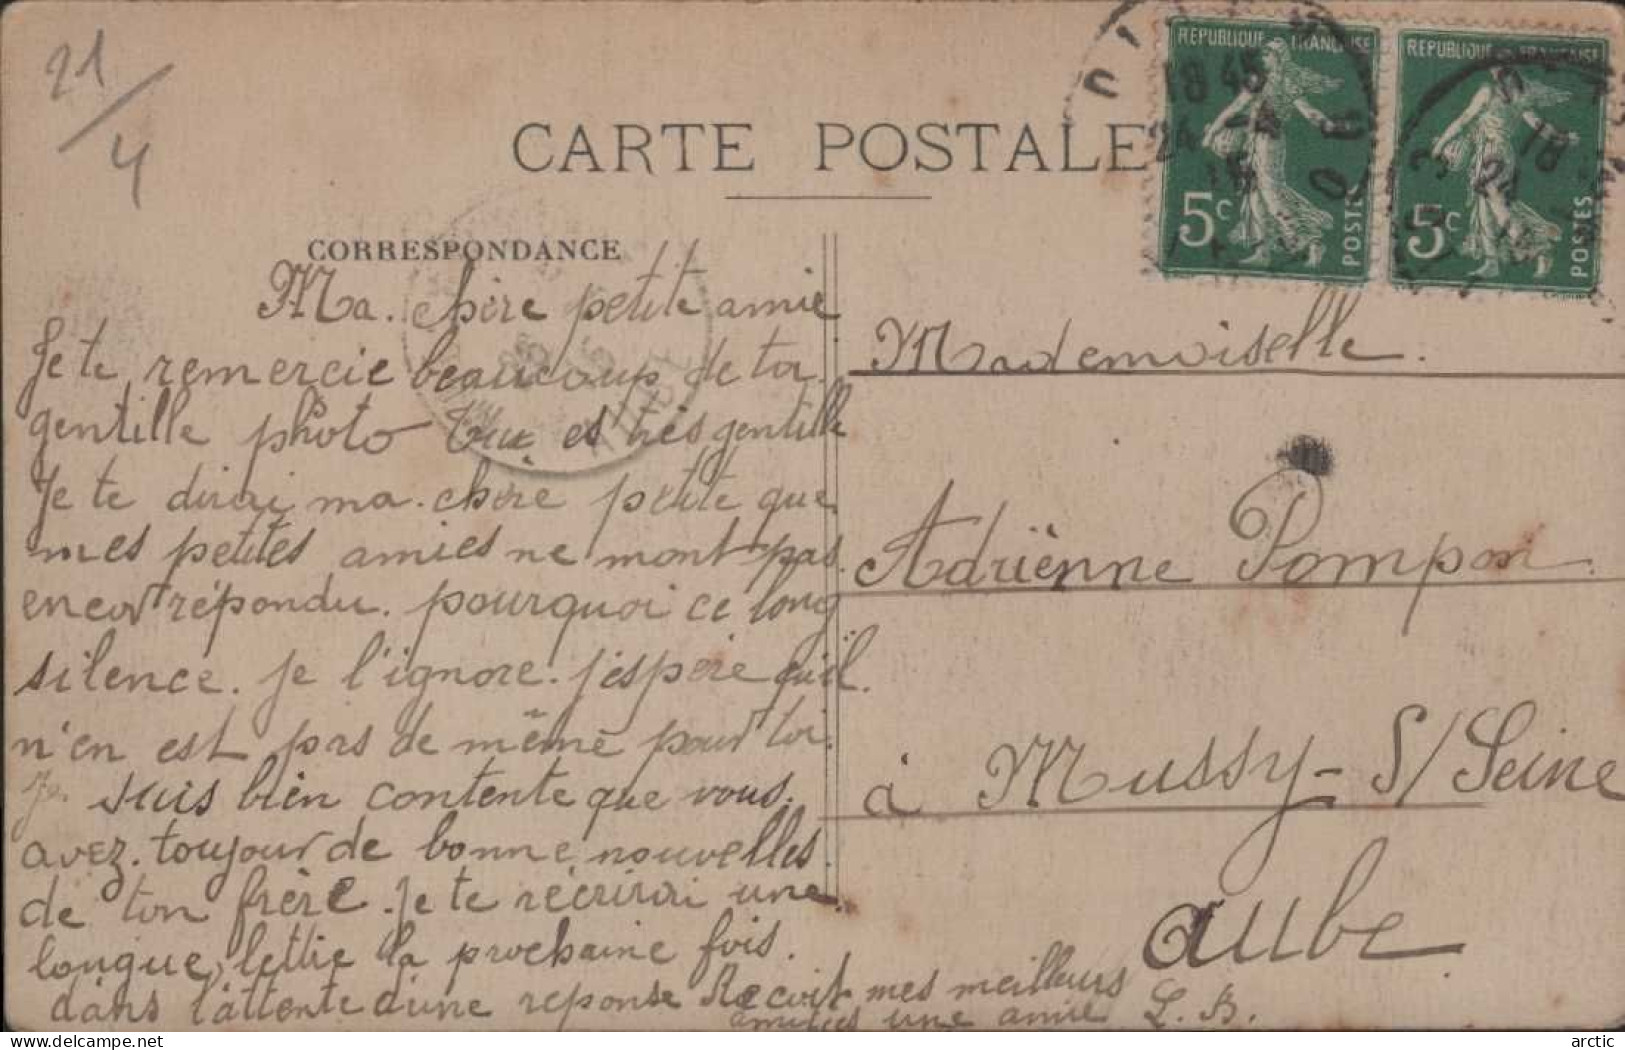 21/4
CARTE POSTALE
REPUBLIQUE FRANÇAISE
5c
POSTES
REPUBLIQUE FRANÇAISE
5c
POSTES
CORRESPONDANCE
Ma. chère petite amie
Je te remercie beaucoup de ta
gentille photo Tu es très gentille
Je te dirai ma. chère petite que
mes petites amies ne mont pas.
encor répondu. pourquoi ce long
silence. je l'ignore. j'espère quil.
n'en est pas de même pour toi.
Je suis bien contente que vous.
avez. toujour de bonne nouvelles.
de ton frère. Je te récrirai une.
longue lettre la prochaine fois.
dans l'attente d'une reponse Recoit mes meilleurs
amitiés une amie L. B.
Mademoiselle.
Adriènne Pompon.
à Mussy-S/Seine
Aube
arctic